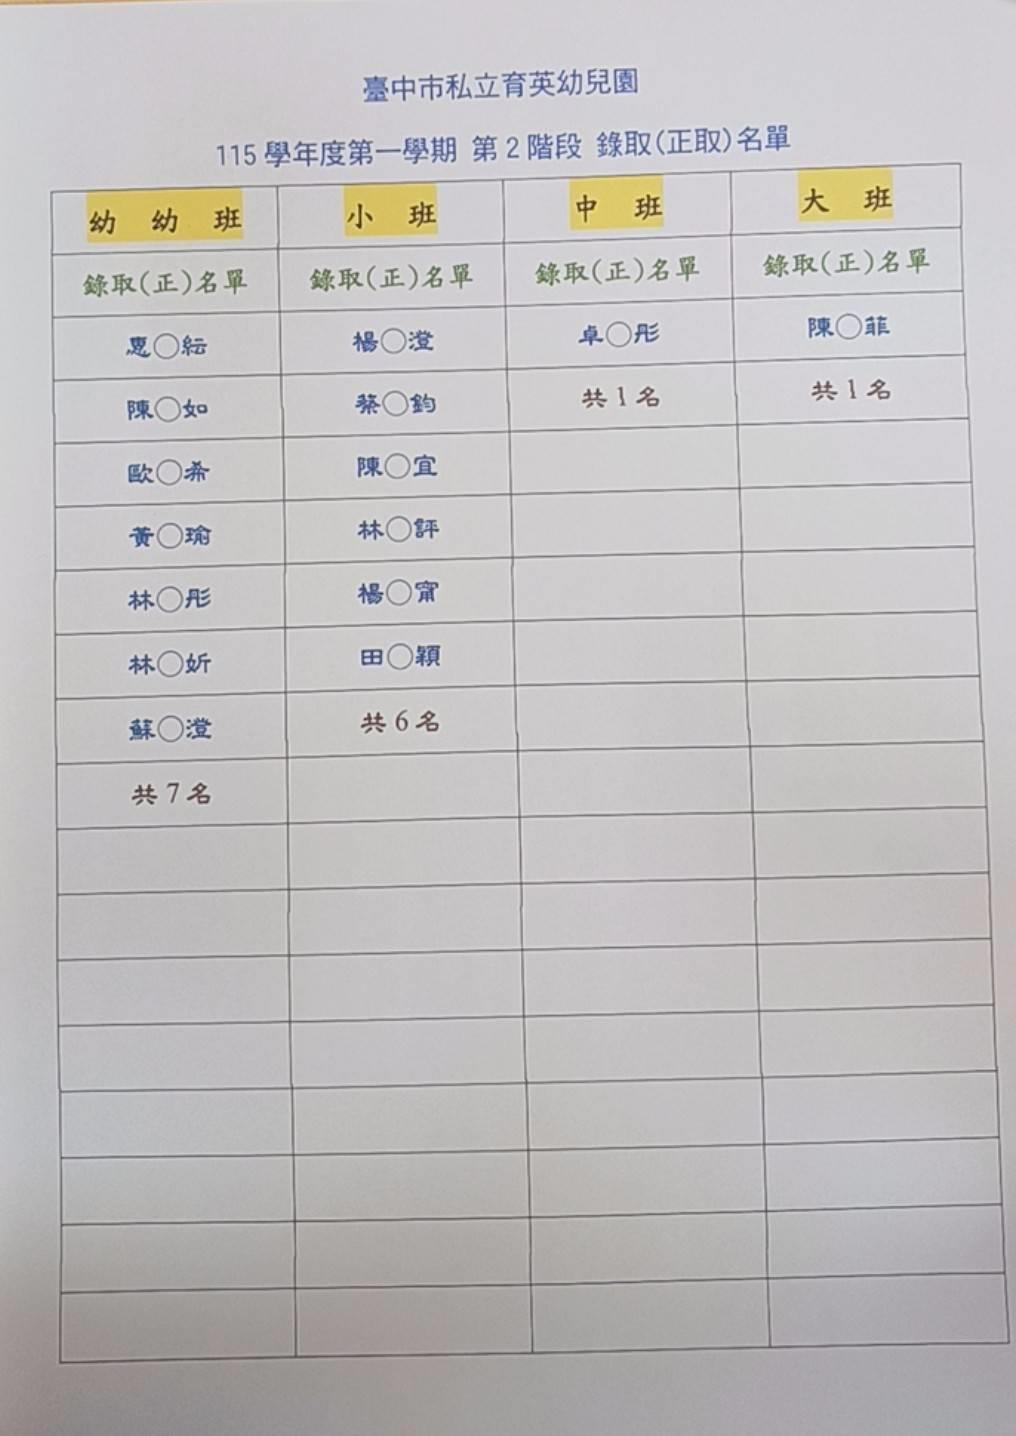 臺中市私立育英幼兒園
115 學年度第一學期 第 2 階段 錄取(正取)名單
幼 幼 班 小 班 中 班 大 班
錄取(正)名單 錄取(正)名單 錄取(正)名單 錄取(正)名單
◯紜 楊◯澄 卓◯彤 陳◯菲
陳◯如 蔡◯鈞 共 1 名 共 1 名
歐◯希 陳◯宜
黃◯瑜 林◯評
林◯彤 楊◯甯
林◯妡 田◯穎
蘇◯澄 共 6 名
共 7 名